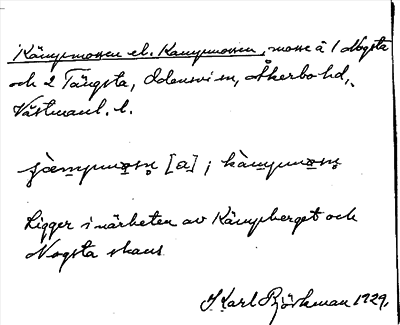 Kämpmossen el. Kampmossen, mosse å 1 Nogsta
och 2 Tängsta, Odensvi sn, Åkerbo hd,
Västmanl. l.
[a] ;
Ligger i närheten av Kämpberget och
Nogsta skans
K. Karl Björkman 1929.